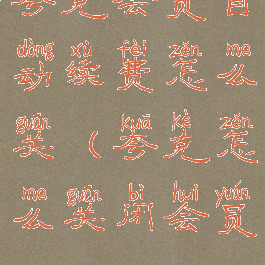 夸克会员自
dòng xù fèi zěn me
动续费怎么
guān kuā kè zěn
关(夸克怎
me guān bì huì yuán
么关闭会员